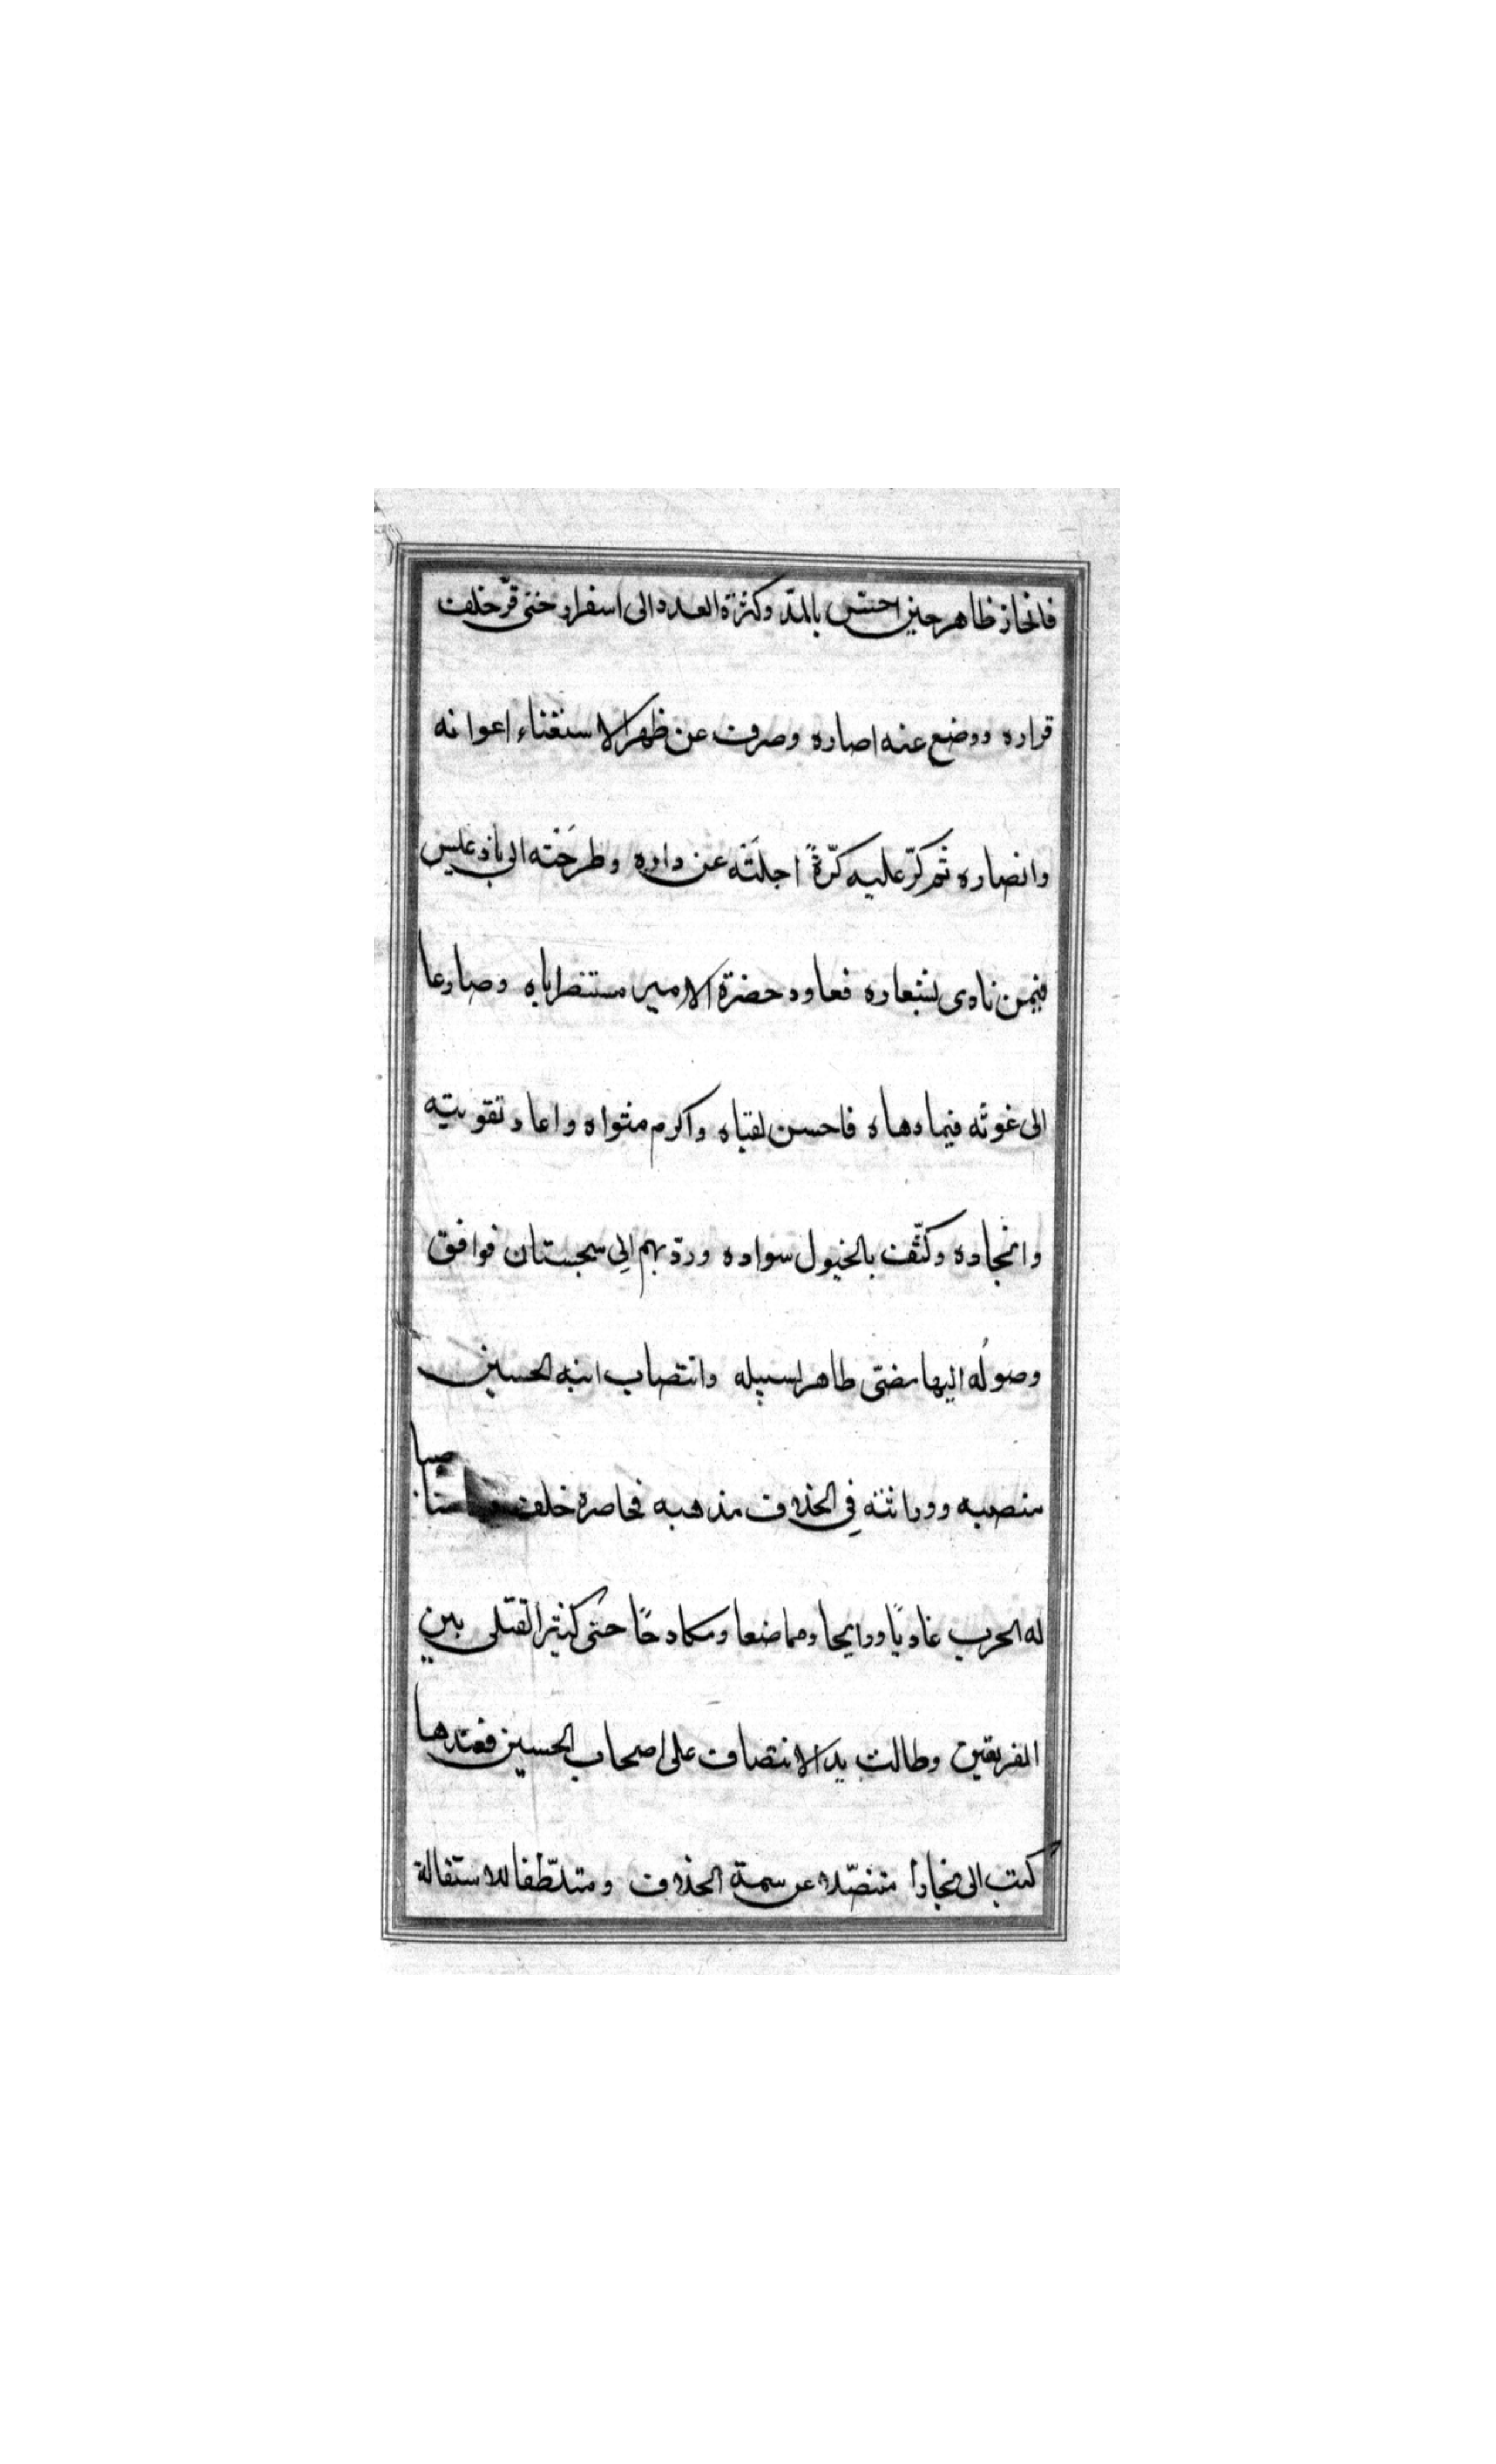 فانحاز ظاهر حين احتس بالمدّ وكثرة العدد الى اسفزار حتى قرّ خلف
قراره ووضع عنه اصاره وصرف عن ظهر الاستغناء اعوانه
وانصاره ثم كرّ عليه كرّةً اجلَتْه عن داره وطرحَتْه الى باذغيس
فيمن نادى بشعاره فعاود حضرة الامير مستنصرا اياه وصارعا
الى غوثه فيما دهاه فاحسن لقياه واكرم مثواه واعاد تقويته
وانجاده وكثّف بالخيول سواده وردّ بهم الى سجستان فوافق
وصولُه اليها مضىّ طاهر لسبيله وانتصاب ابنه الحسين
منصبه ووراثته في الخلاف مذهبه فحاصره خلف
له الحرب غاديًا ورايحا ومماضعا ومكادحًا حتى كثير القتلى بين
الفريقين وطالت يد الانتصاف على اصحاب الحسين فعندها
كتب الى بخارا متنصّلا عن سمة الخلاف ومتلطّفا للاستقالة